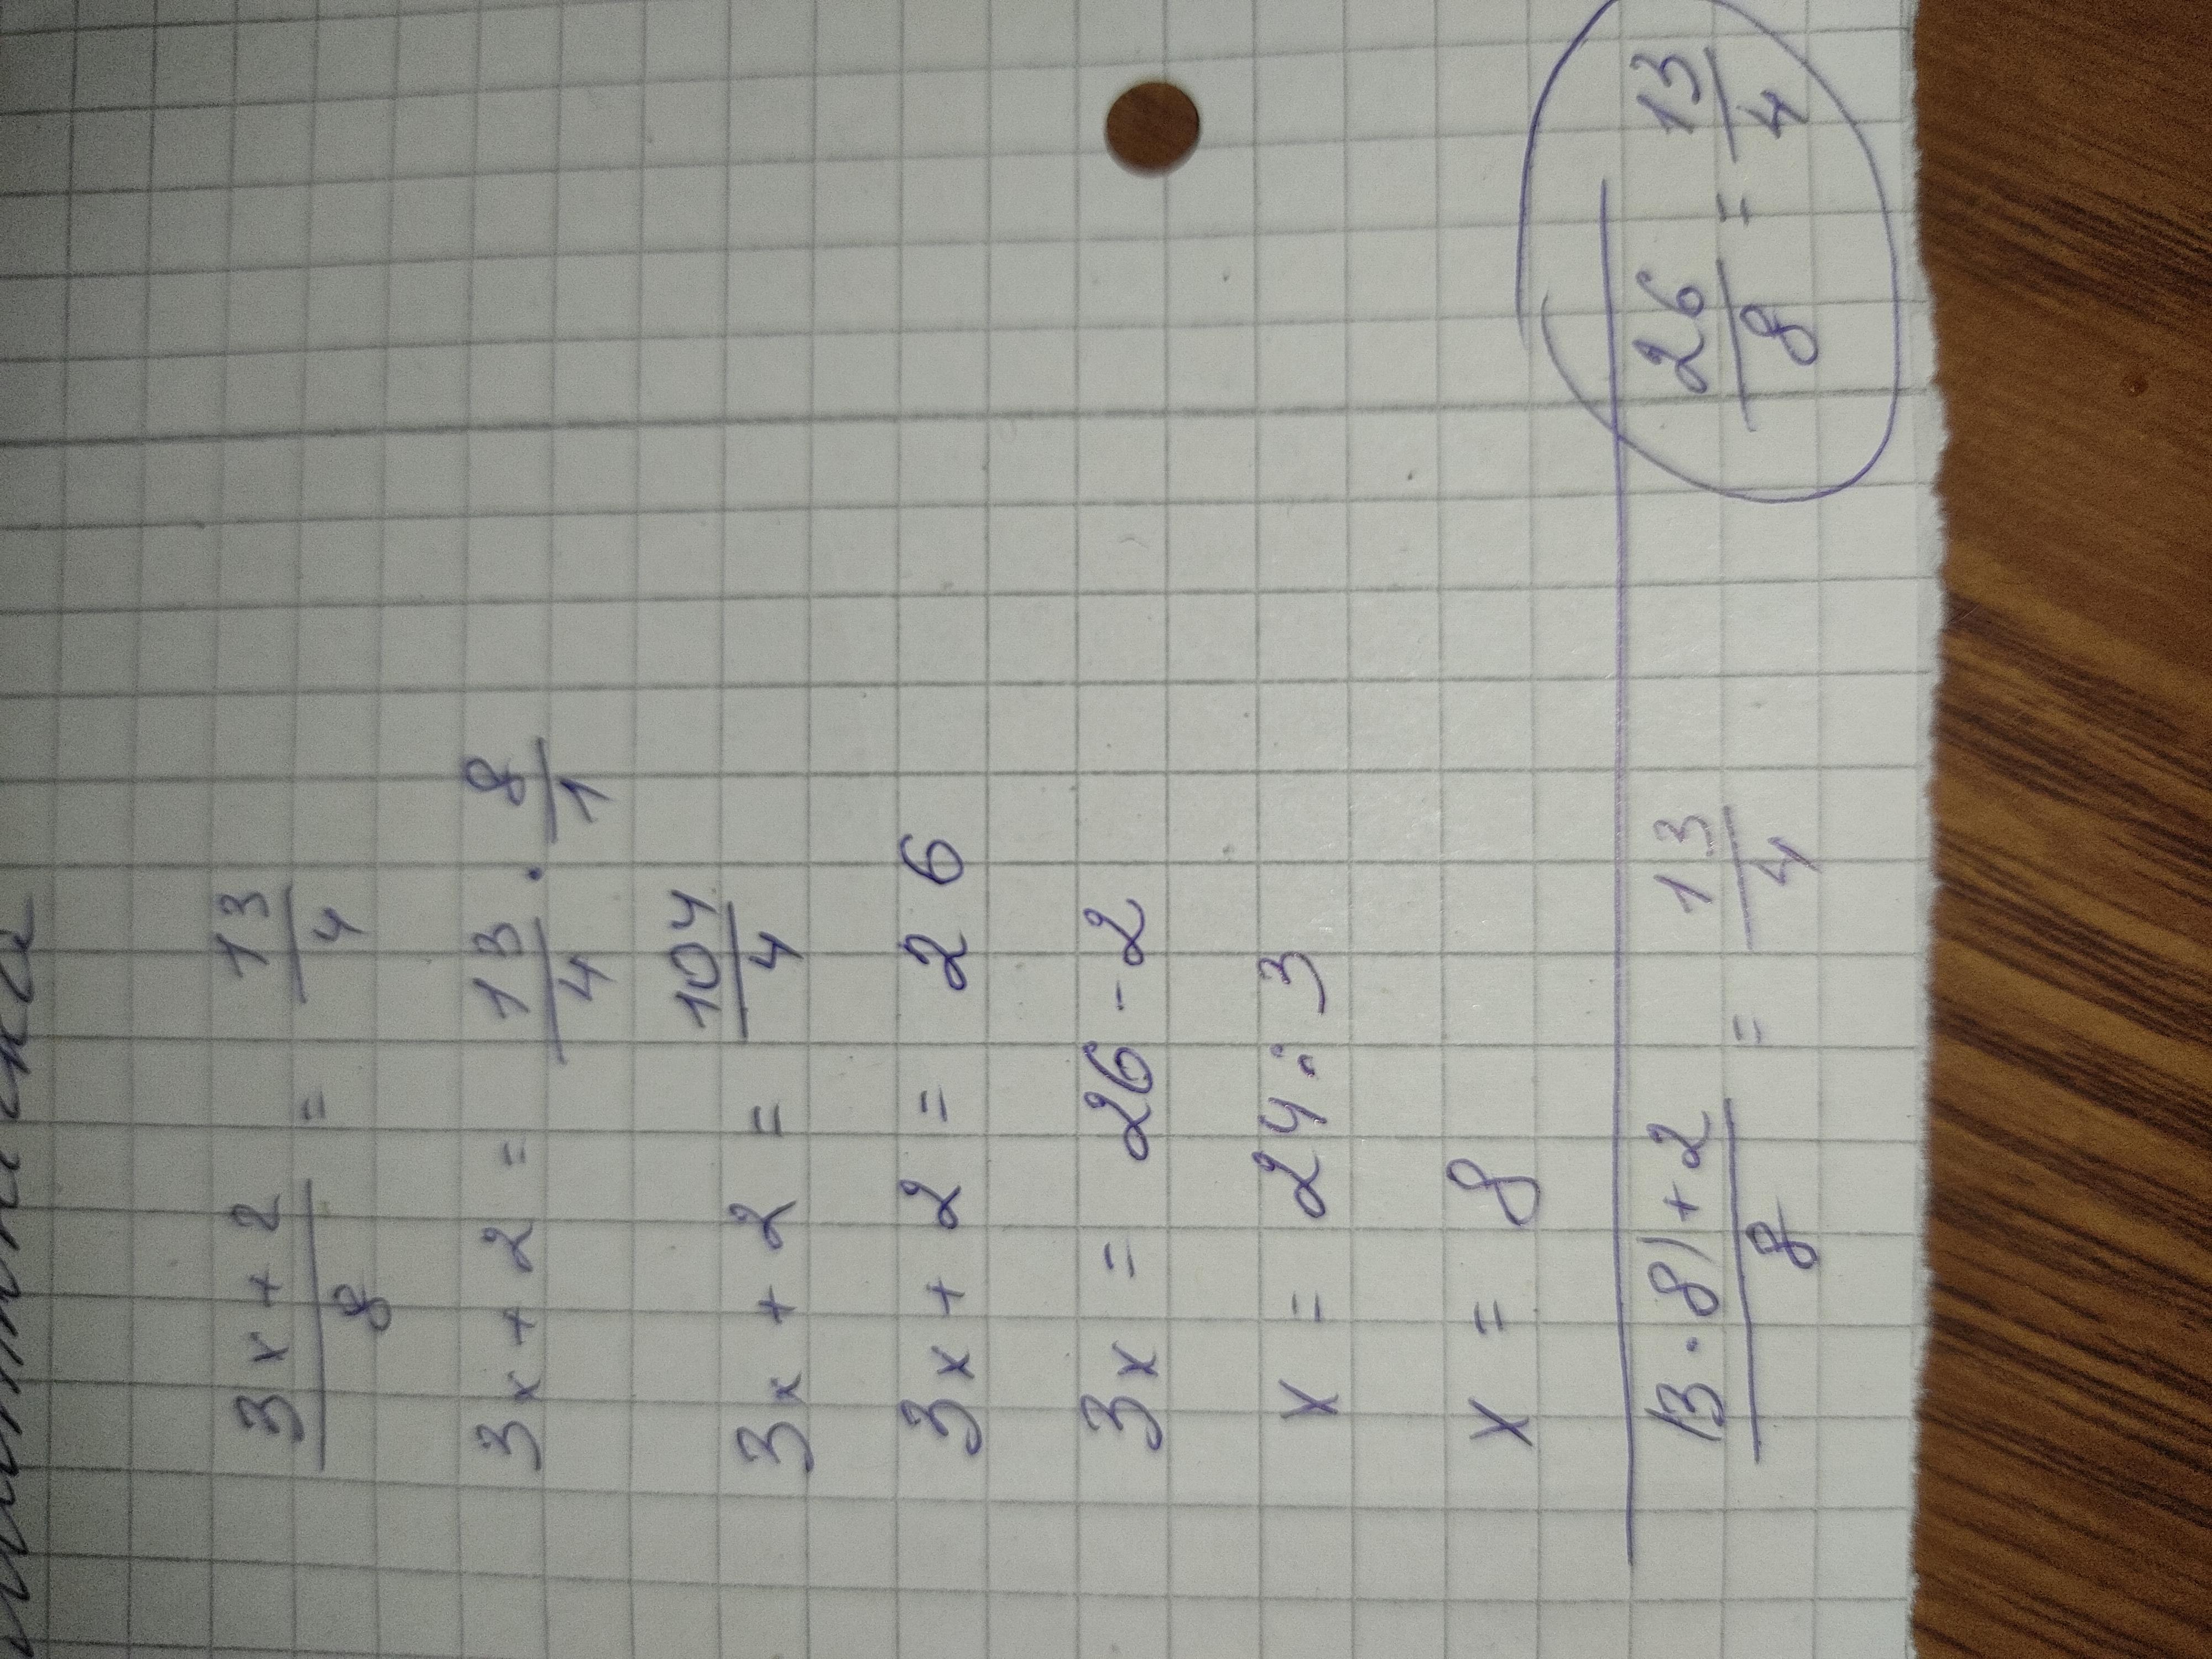 3x+2/8 = 13/4
3x+2 = 13/4 · 8/1
3x+2 = 104/4
3x+2 = 26
3x = 26-2
x = 24:3
x = 8
(3·8)+2/8 = 13/4
26/8 = 13/4